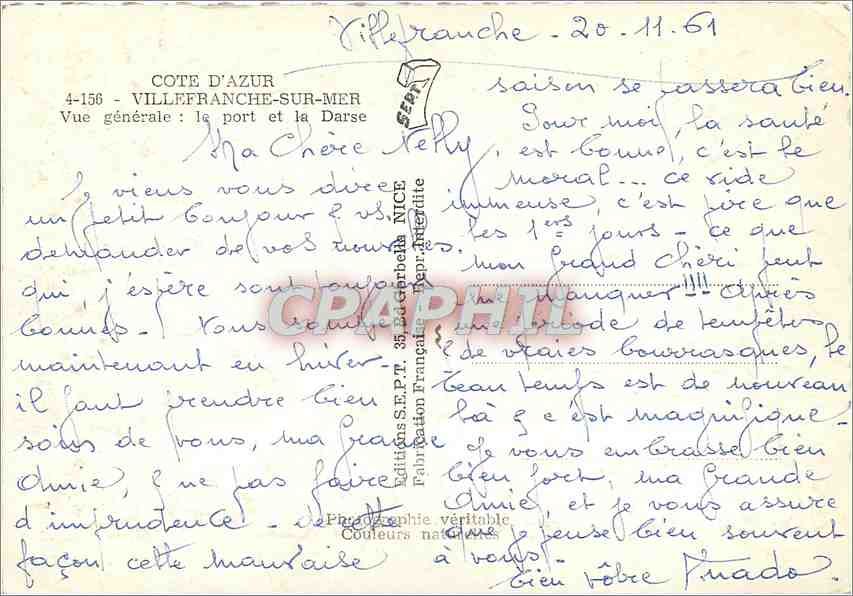 Villefranche - 20 - 11 - 61
COTE D'AZUR
4-156 - VILLEFRANCHE-SUR-MER
Vue générale : le port et la Darse
SEPT
Ma Chère Nelly,
Je viens vous dire
un petit bonjour & vs.
demander de vos nouvelles.
qui, j'espère sont toujours
bonnes - Nous sommes
maintenant en hiver -
il faut prendre bien
soins de vous, ma Grande
Amie, & ne pas faire
d'imprudence - de cette
façon cette mauvaise
saison se passera bien.
Pour moi, la santé
est bonne, c'est le
moral... ce vide
immense, c'est pire que
les 1ers jours - ce que
mon Grand Chéri peut
me manquer !!!! - Après
une période de tempêtes
& de vraies bourrasques, le
beau temps est de nouveau
là & c'est magnifique -
Je vous embrasse bien
bien fort, ma Grande
Amie, et je vous assure
que je pense bien souvent
à vous -
bien vôtre
Editions S.E.P.T. 35, Bd Gorbella NICE
Fabrication Française Repr. Interdite
Photographie véritable
Couleurs naturelles
CPAPHIL